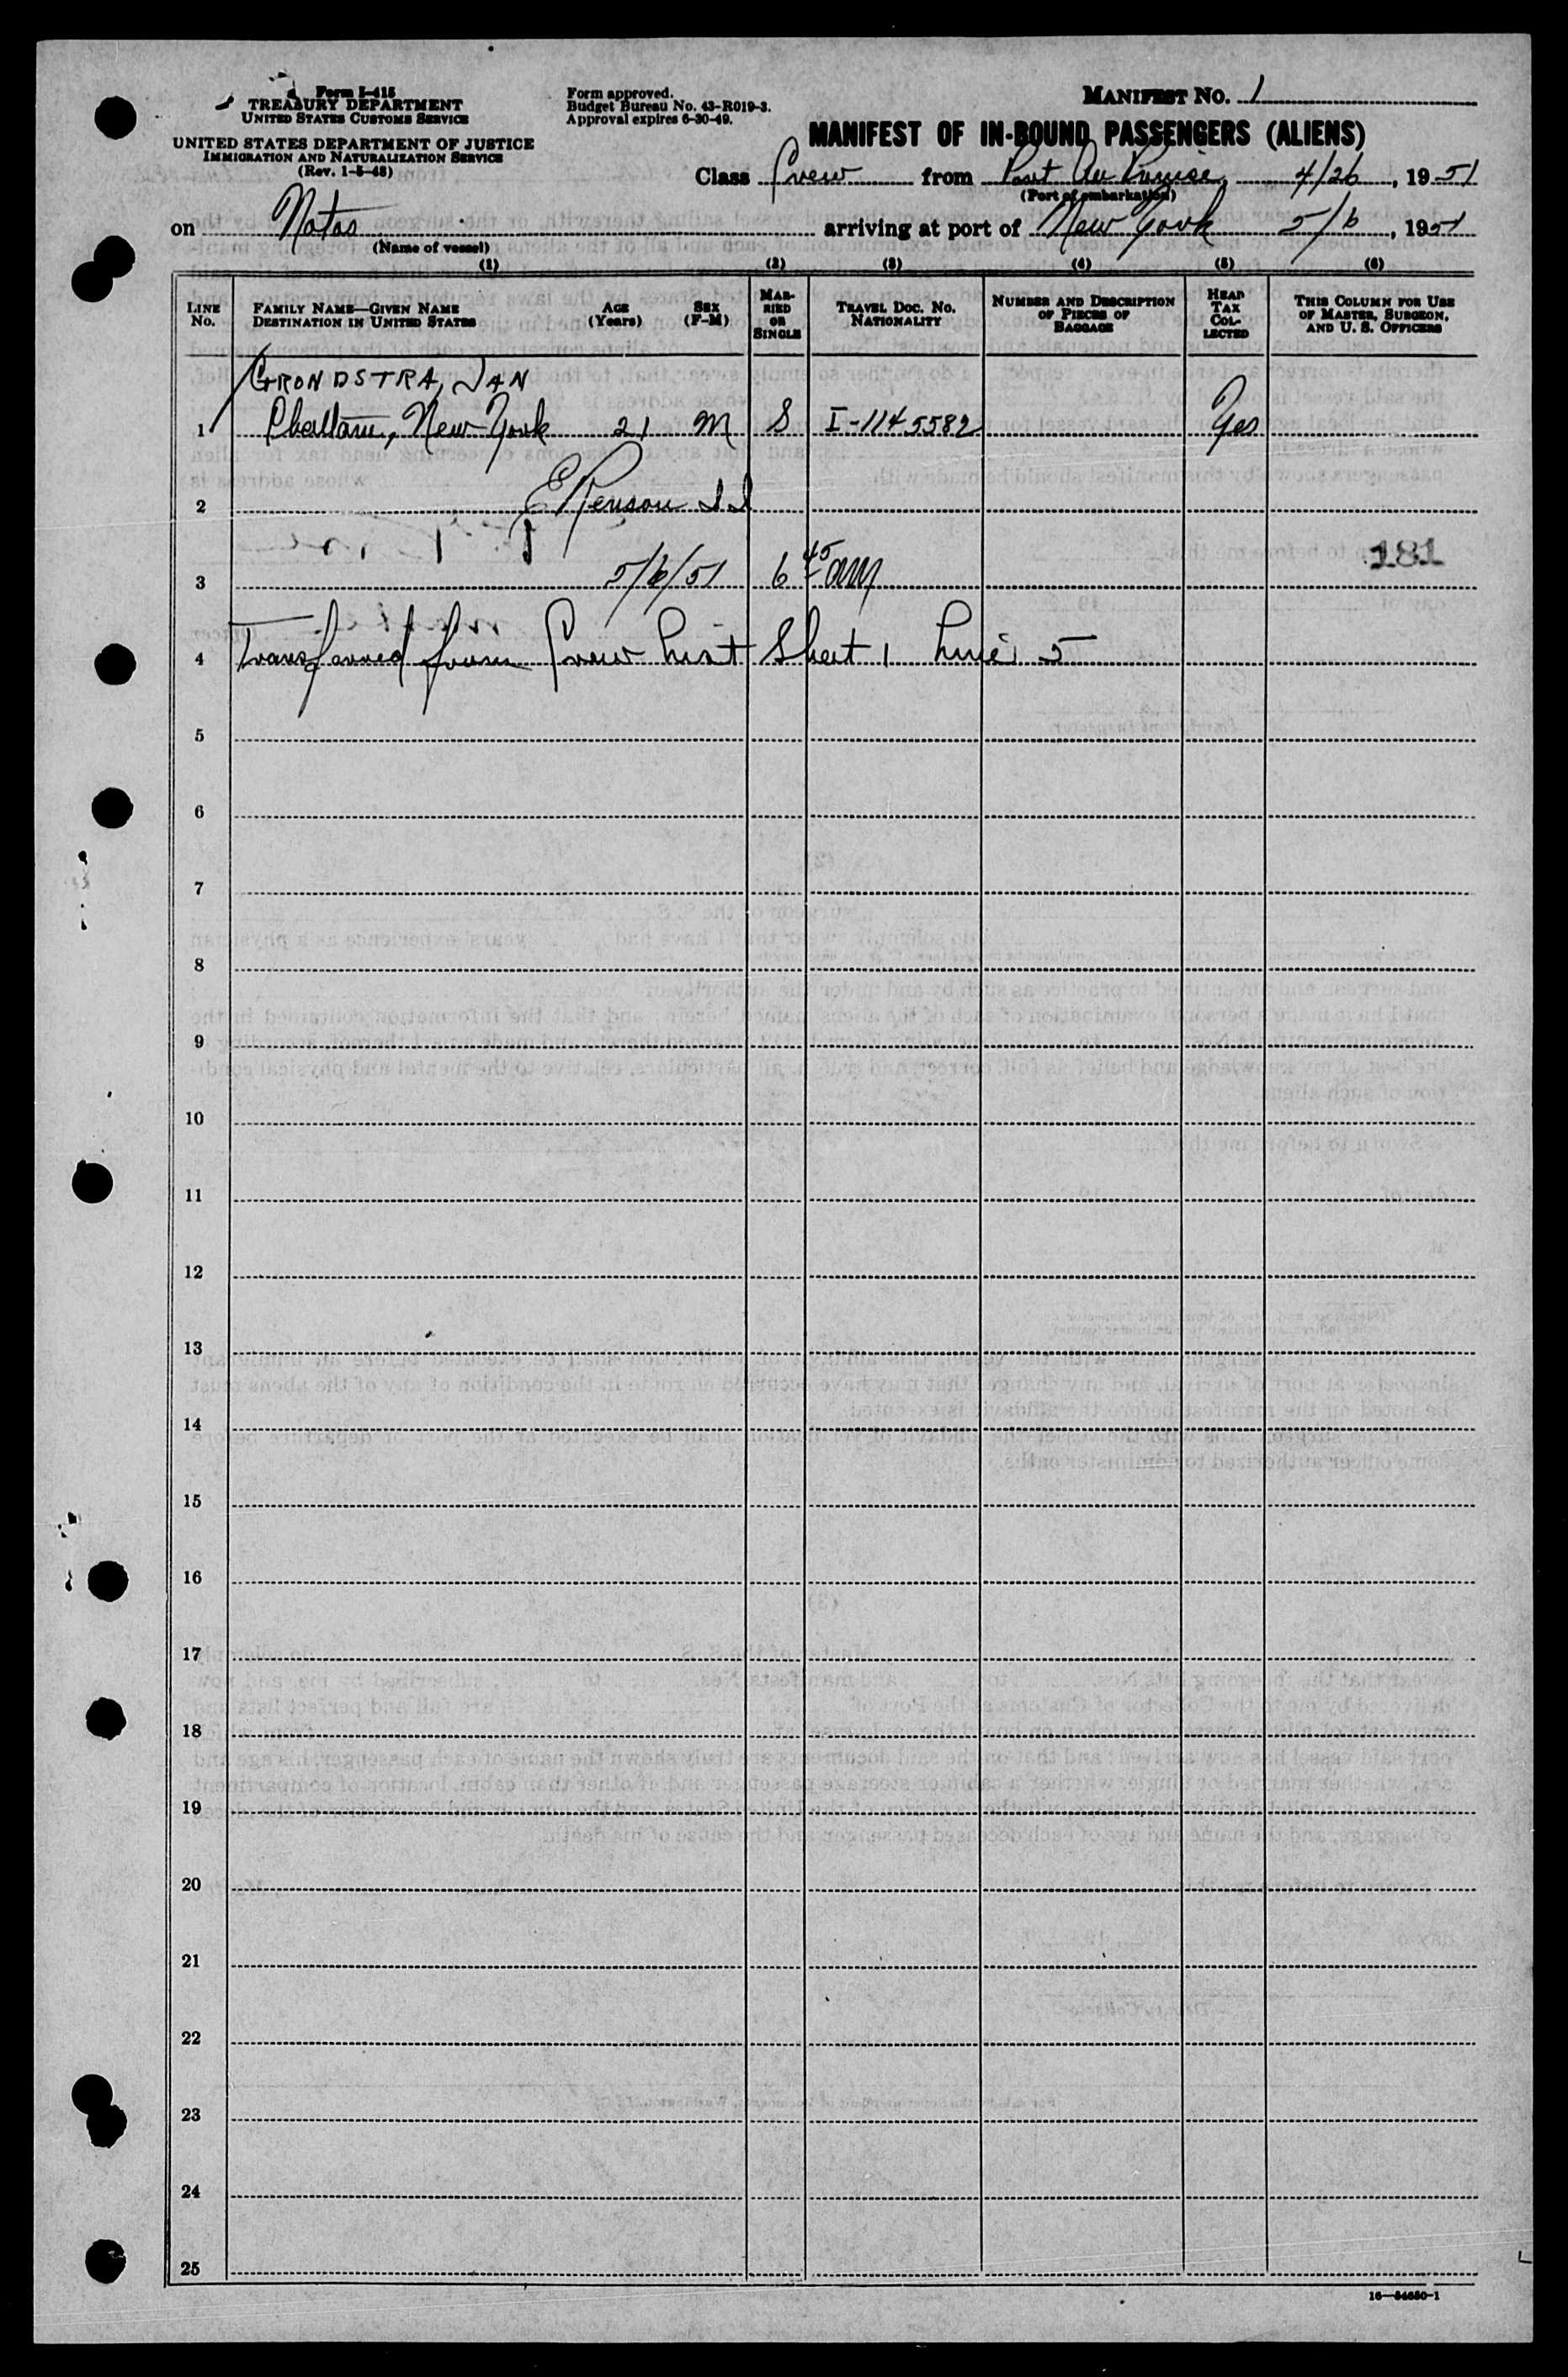 Form I-415
TREASURY DEPARTMENT
UNITED STATES CUSTOMS SERVICE
UNITED STATES DEPARTMENT OF JUSTICE
IMMIGRATION AND NATURALIZATION SERVICE
(Rev. 1-5-48)
Form approved.
Budget Bureau No. 43-R019-3.
Approval expires 6-30-49.
MANIFEST NO. 1
MANIFEST OF IN-BOUND PASSENGERS (ALIENS)
Class Crew from Port Au Prince, 4/26, 1951
(Port of embarkation)
on Notos arriving at port of New York 5/6, 1951
(Name of vessel)
(1) (2) (3) (4) (5) (6)
LINE No.
FAMILY NAME—GIVEN NAME DESTINATION IN UNITED STATES
AGE (Years)
SEX (F-M)
MARRIED OR SINGLE
TRAVEL DOC. NO. NATIONALITY
NUMBER AND DESCRIPTION OF PIECES OF BAGGAGE
HEAD TAX COLLECTED
THIS COLUMN FOR USE OF MASTER, SURGEON, AND U. S. OFFICERS
GRONDSTRA, JAN
1 New York 21 M S I-1145582 Yes
2
3 5/6/51 6 45 am 181
4 Transferred from Crew List Sheet 1 Line 5
5
6
7
8
9
10
11
12
13
14
15
16
17
18
19
20
21
22
23
24
25